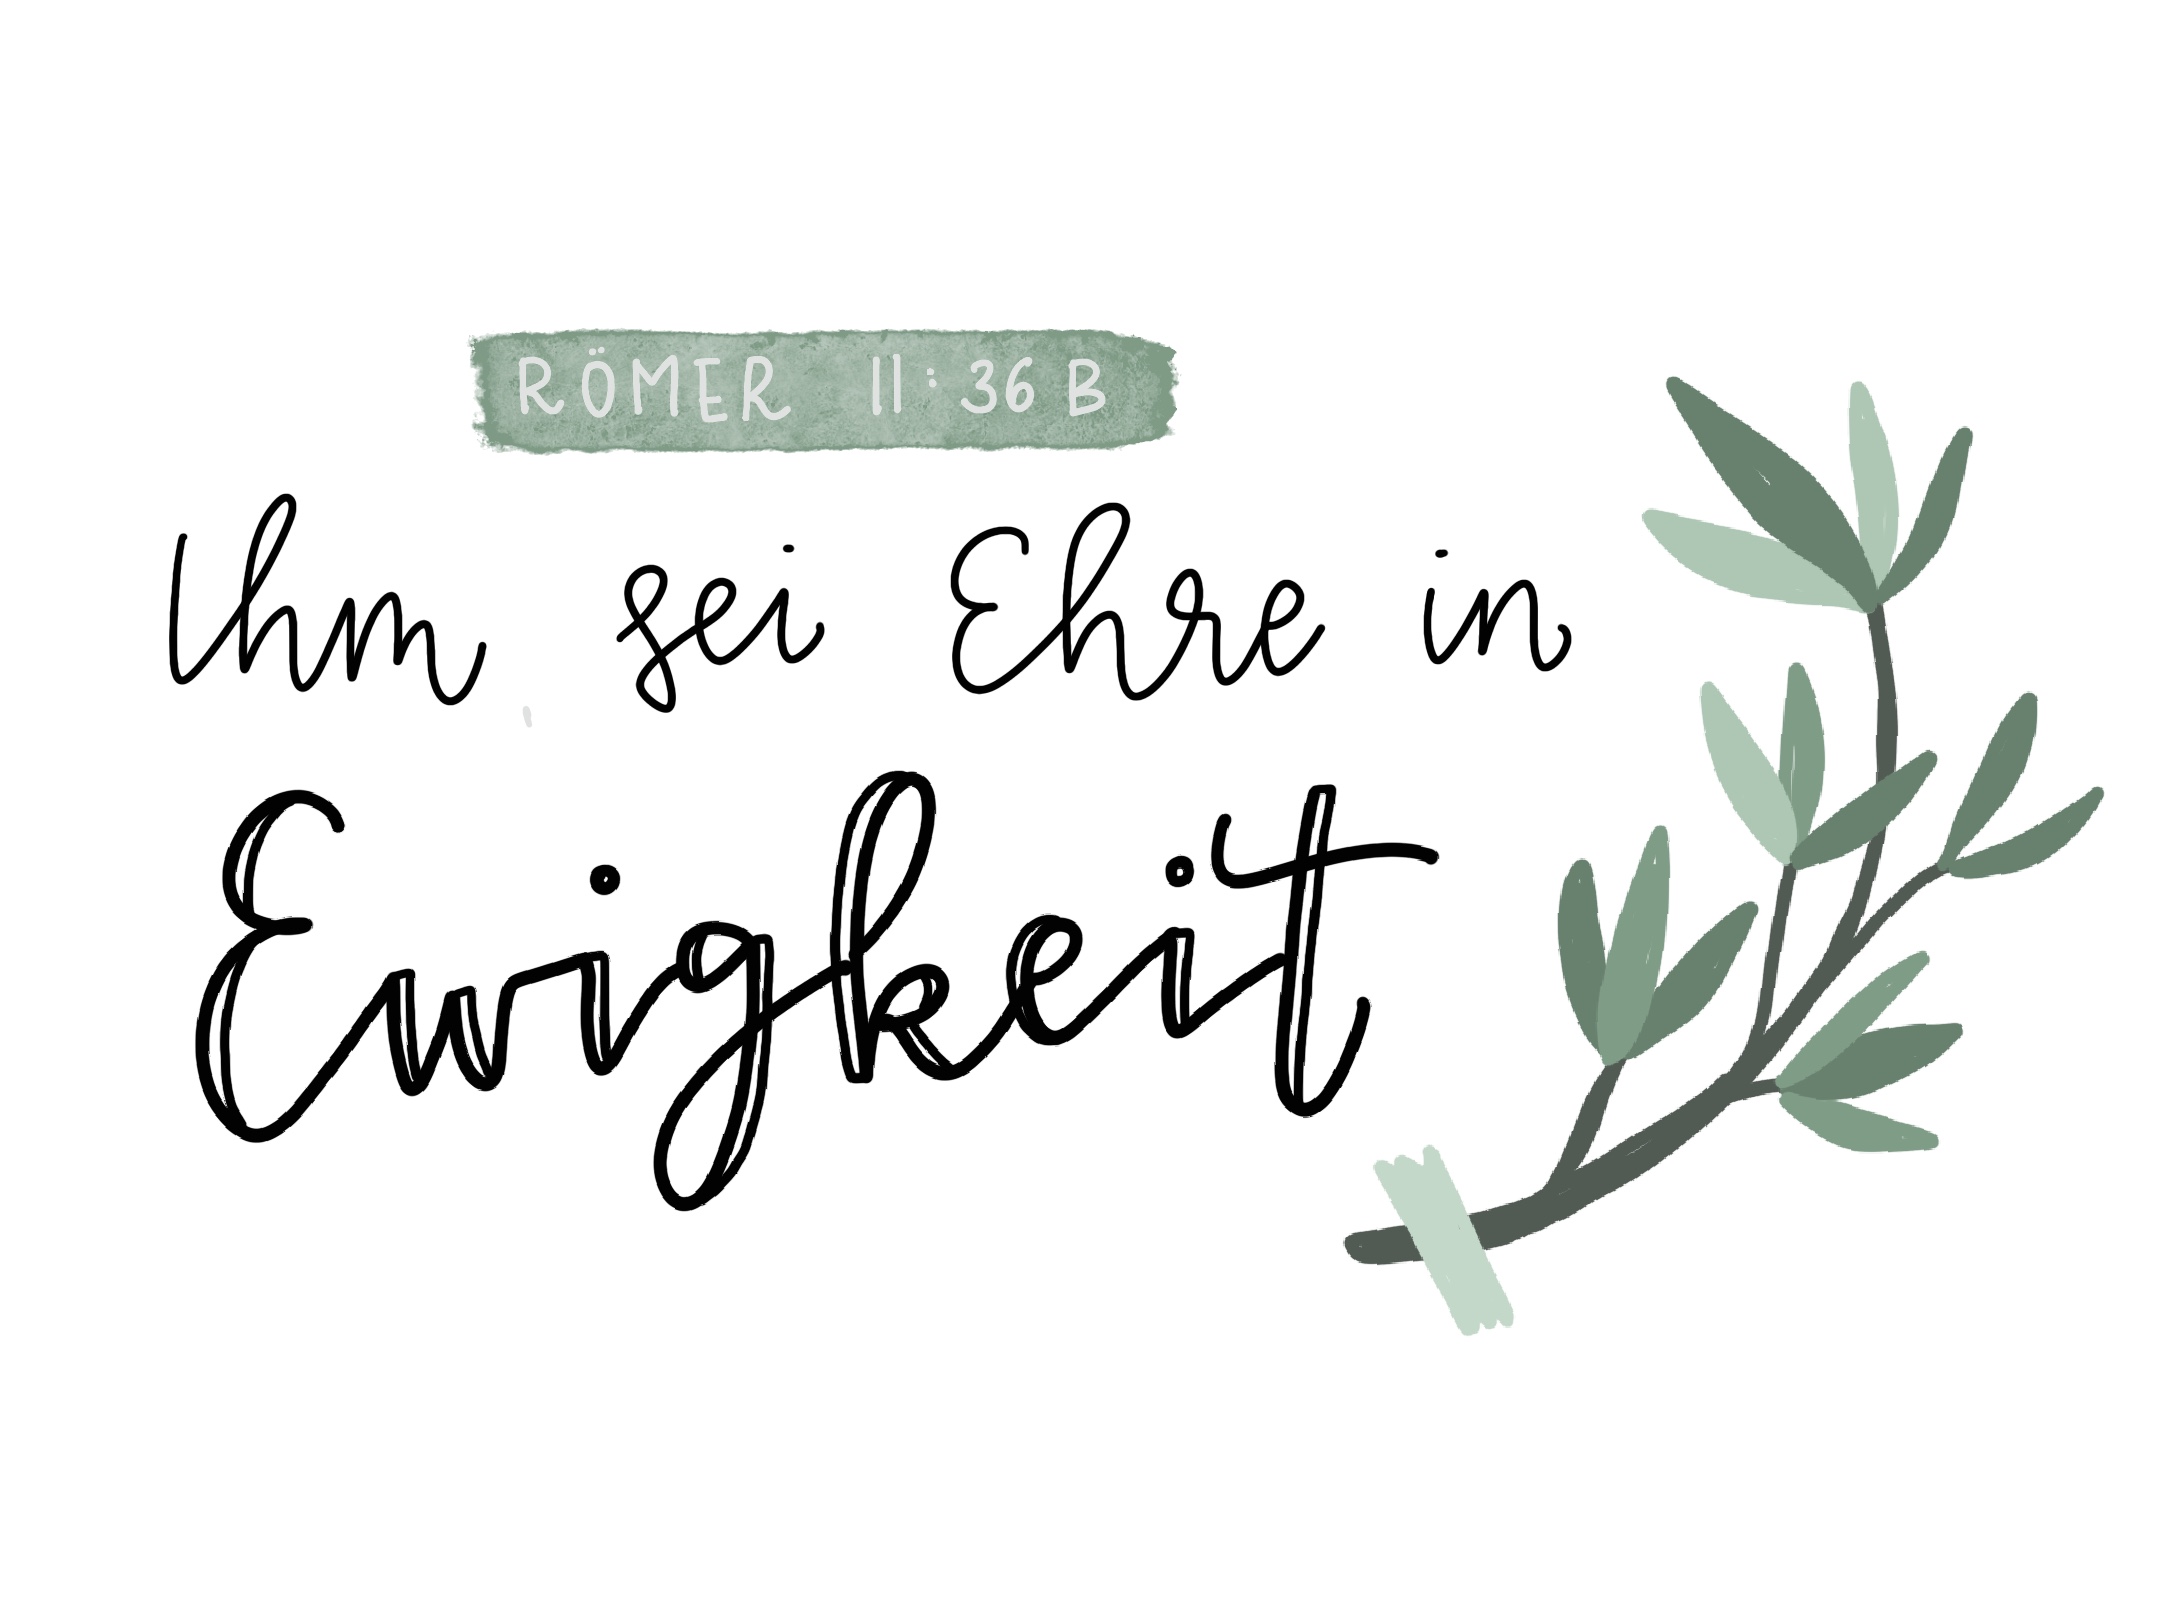 RÖMER 11:36 B
Ihm sei Ehre in
Ewigkeit